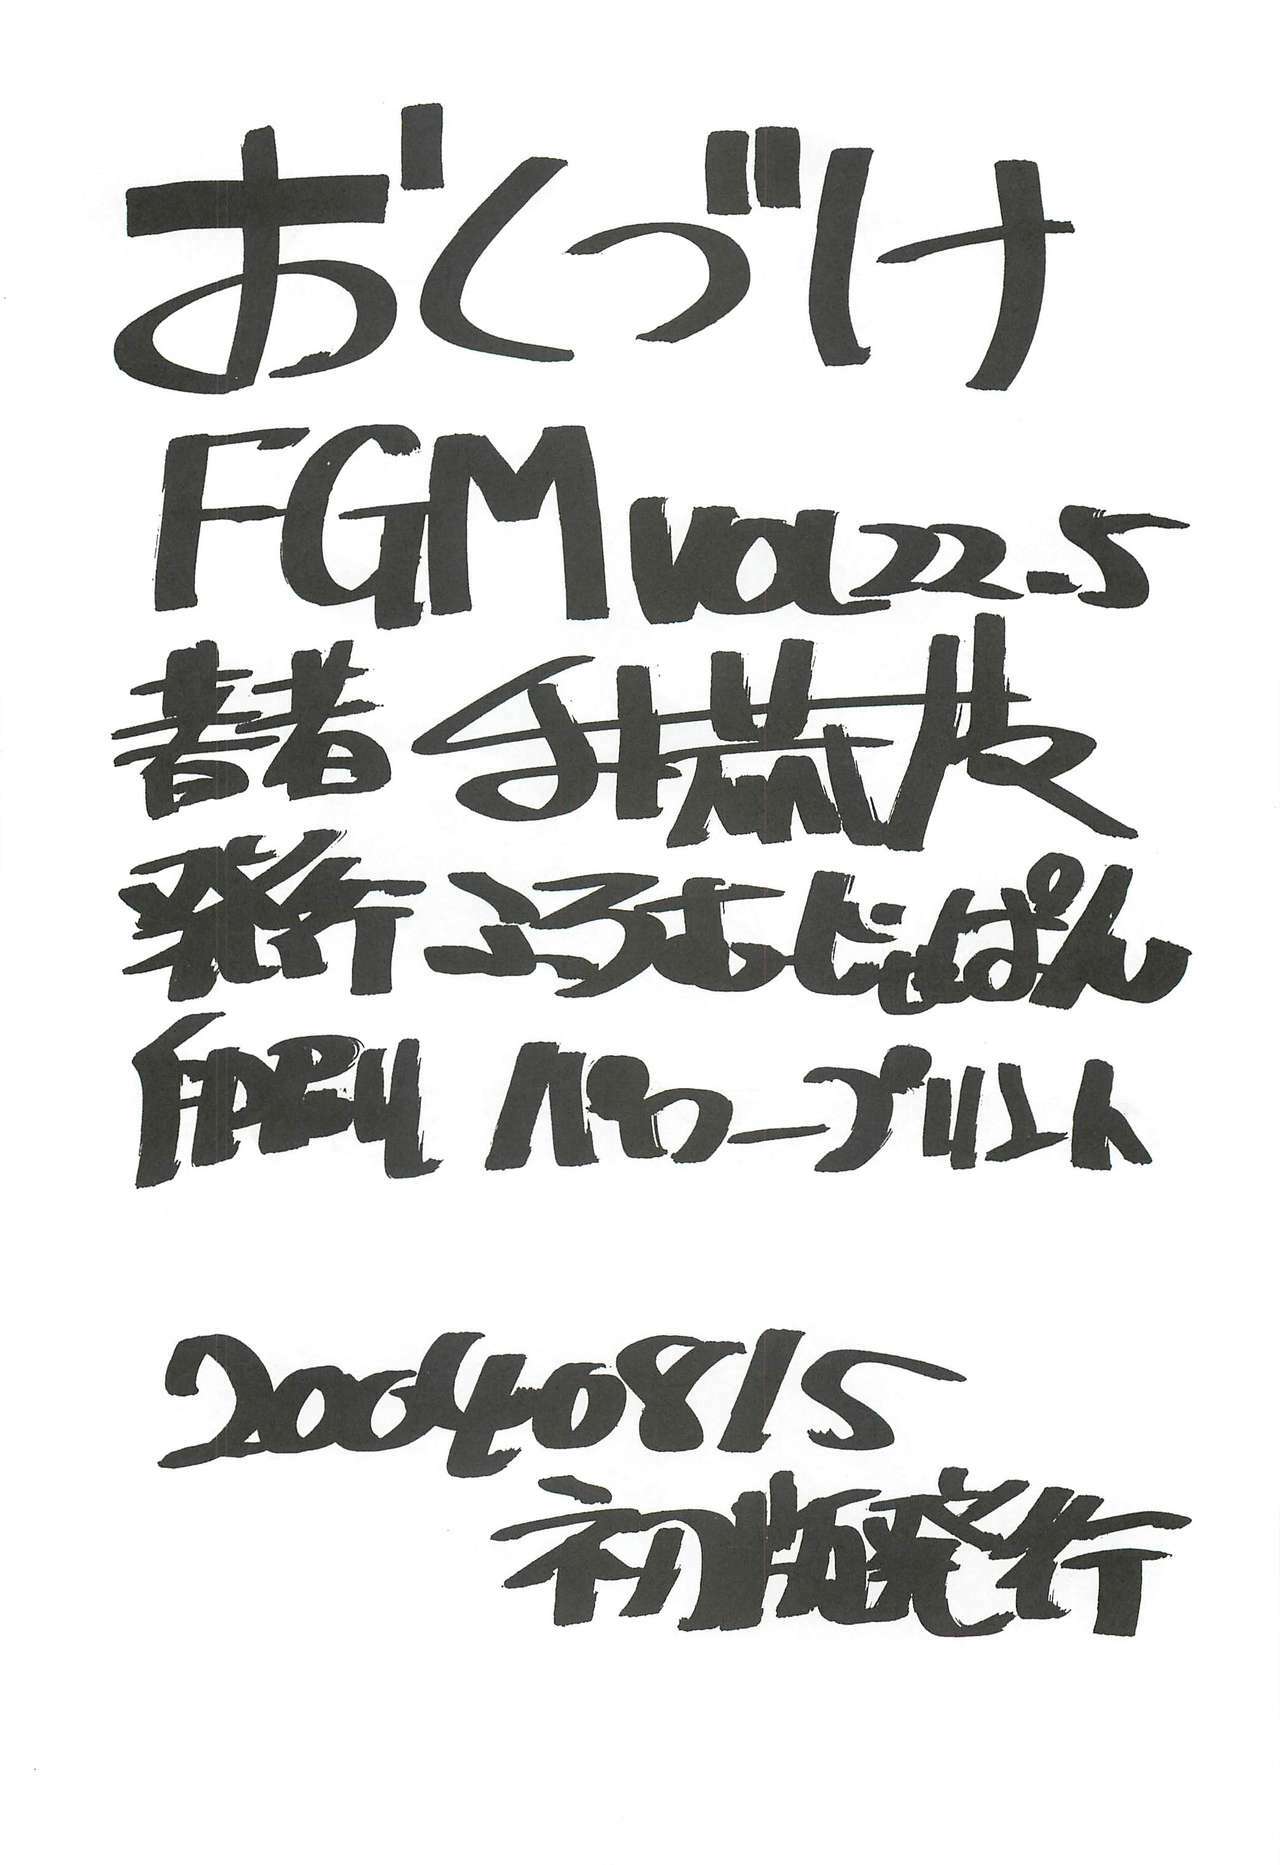 おくづけ
FGM VOL22.5
著者 秋荒波
発行 ふろむじゃぱん
印刷 パワープリント
20040815
初版発行